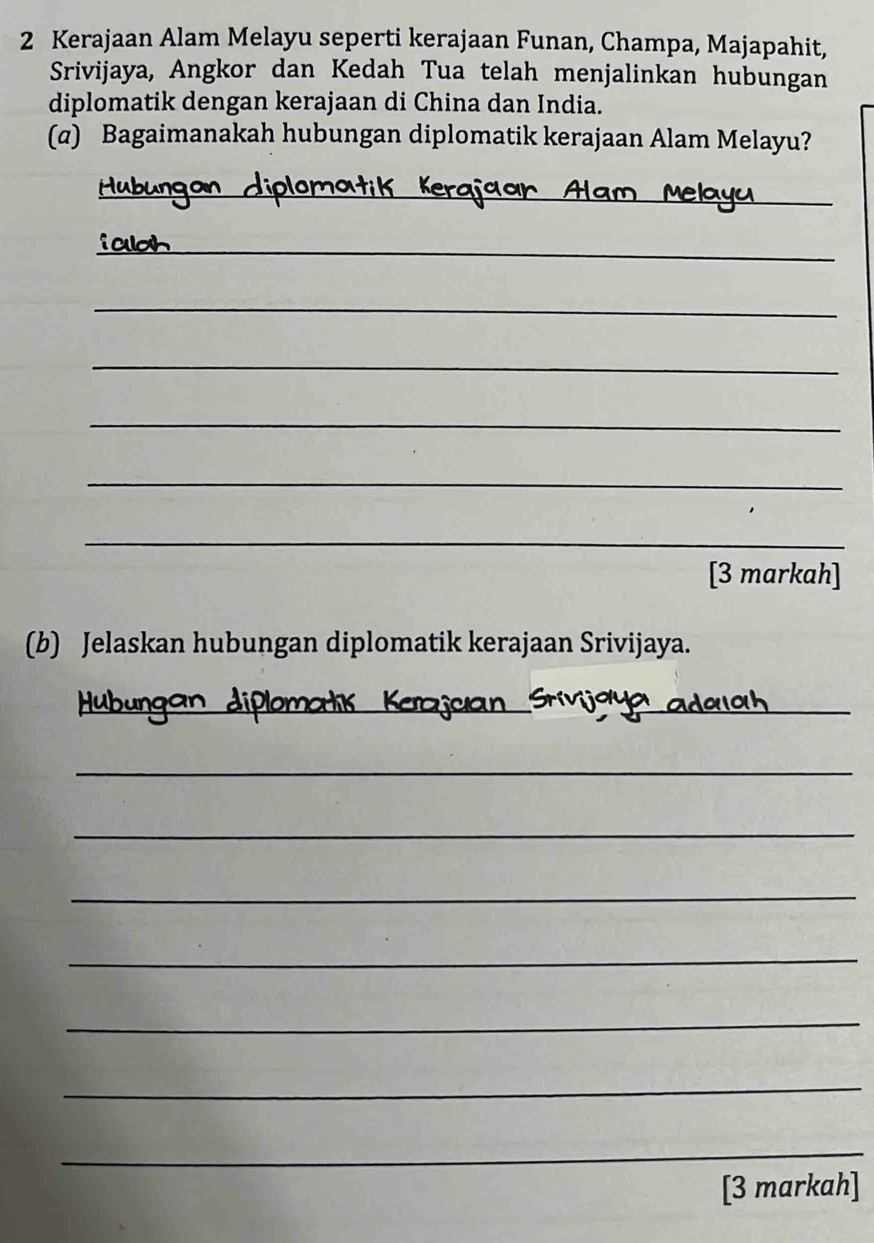 2 Kerajaan Alam Melayu seperti kerajaan Funan, Champa, Majapahit,
Srivijaya, Angkor dan Kedah Tua telah menjalinkan hubungan
diplomatik dengan kerajaan di China dan India.
(a) Bagaimanakah hubungan diplomatik kerajaan Alam Melayu?
Hubungan diplomatik Kerajaan Alam Melayu
ialah
[3 markah]
(b) Jelaskan hubungan diplomatik kerajaan Srivijaya.
Hubungan diplomatik Kerajaan Srivijaya adalah
[3 markah]